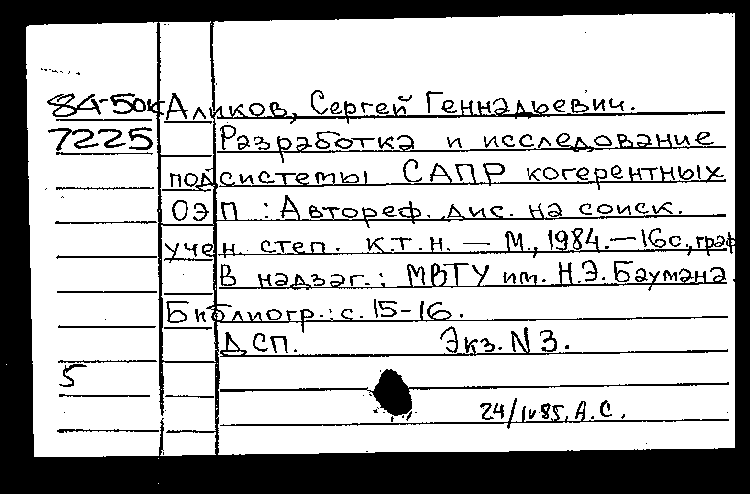 84-50к Аликов, Сергей Геннадьевич.
7225 Разработка и исследование
подсистемы САПР когерентных
ОЭП : Автореф. дис. на соиск.
учен. степ. к.т.н. — М., 1984.—16с, граф
В надзаг.: МВТУ им. Н.Э.Баумана.
Библиогр.: с. 15-16.
ДСП. Экз. N 3.
5
24/IV 85. А.С.